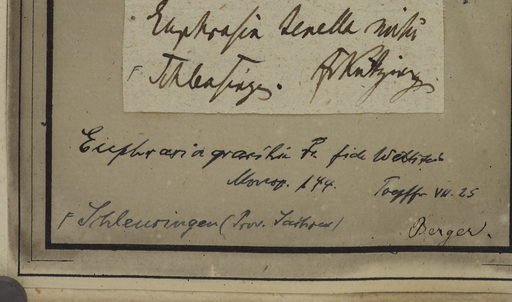 Euphrasia tenella mihi
F Schleusingen. Fr Kützing
Euphrasia gracilis Fr. fide Wettstein
Monogr. 144. Toepffer VII. 25
F Schleusingen (Prov. Sachsen)
Berger.